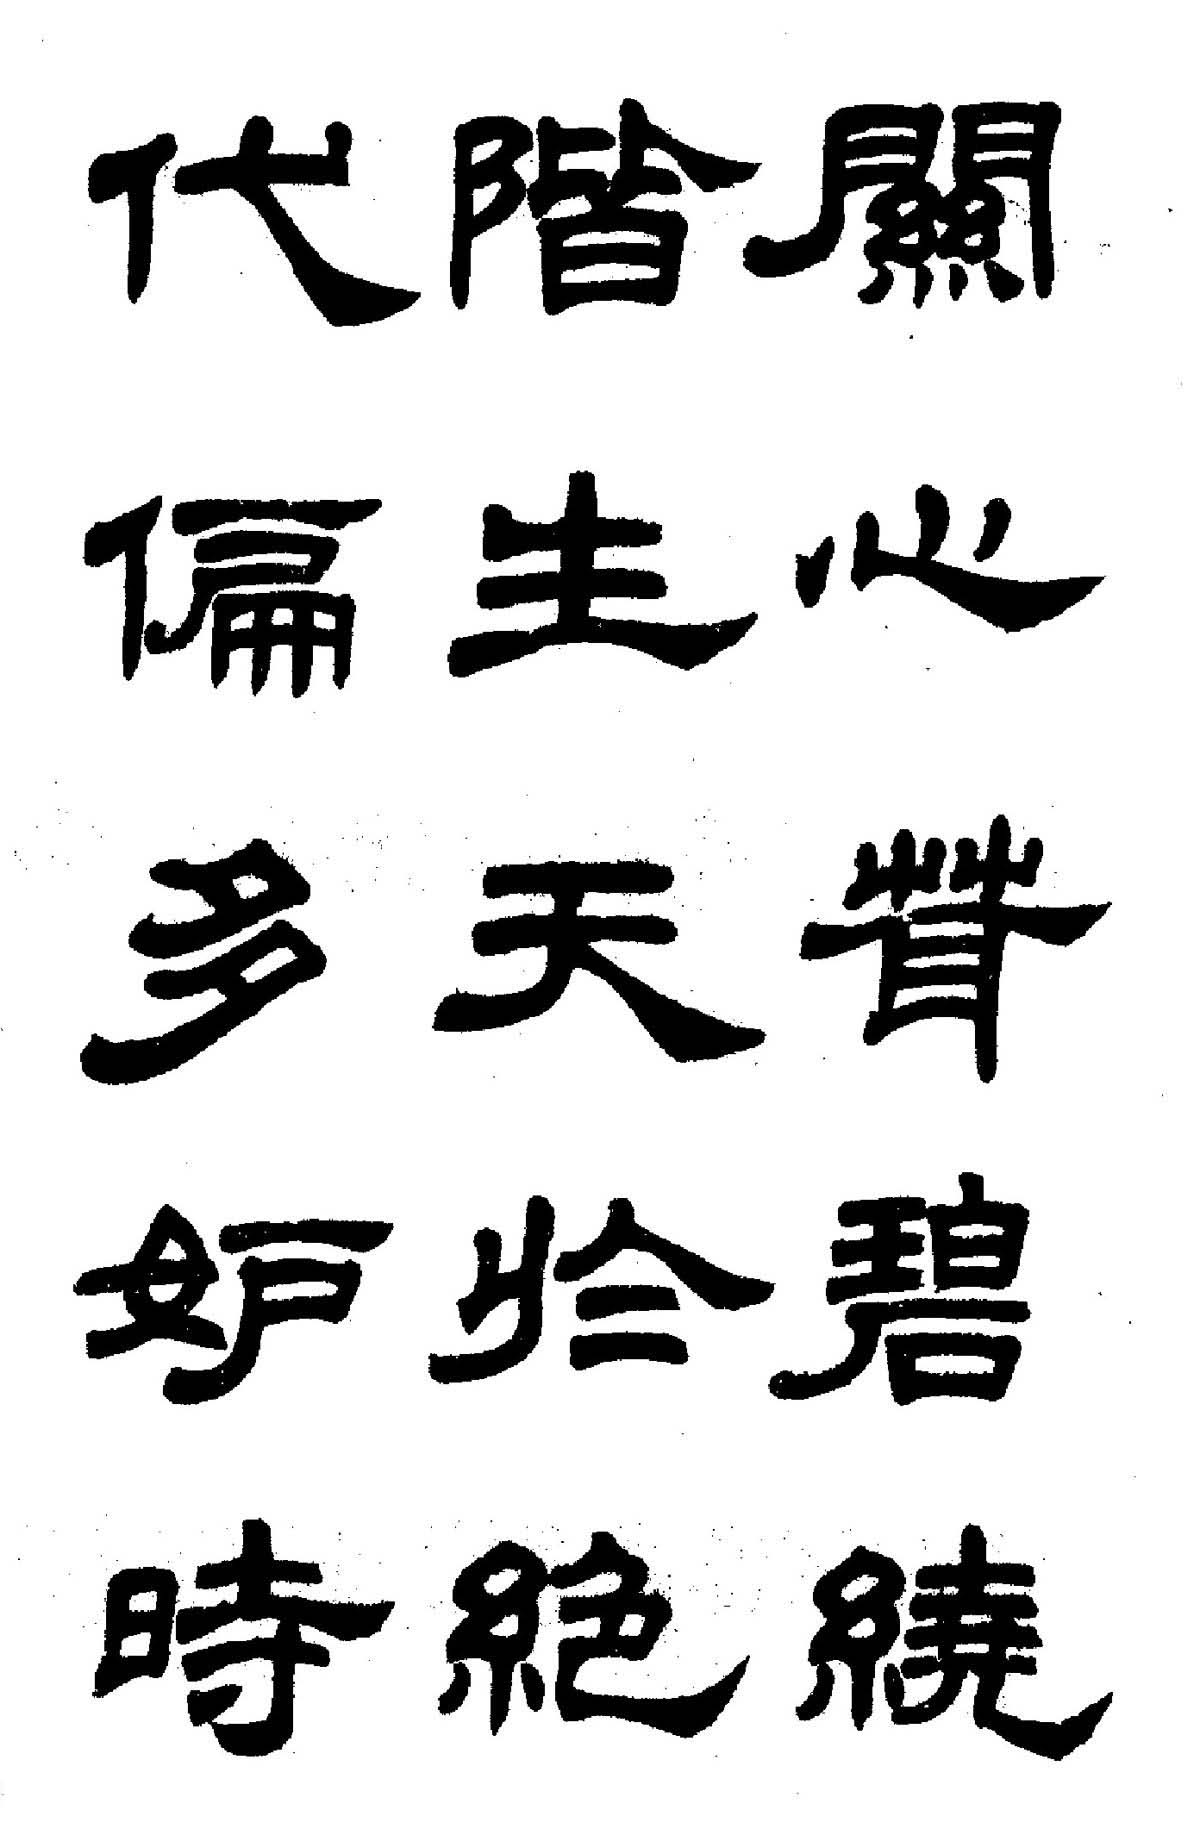 關心茸碧繞
階生天於絶
代偏多妒時